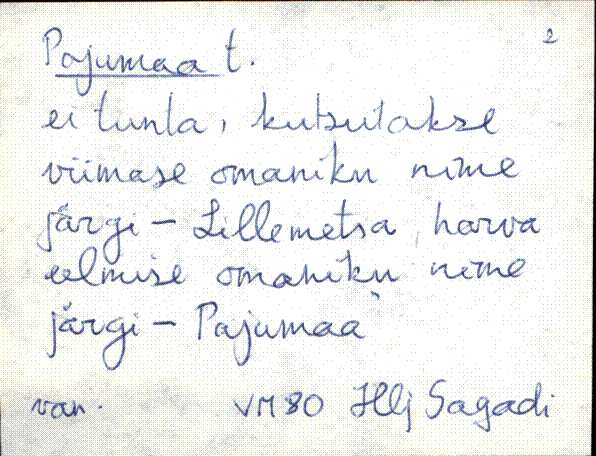 2
Pajumaa t.
ei tunta, kutsutakse
viimase omaniku nime
järgi – Lillemetsa, harva
eelmise omaniku nime
järgi – Pajumaa
van. VM 80 Hlj Sagadi